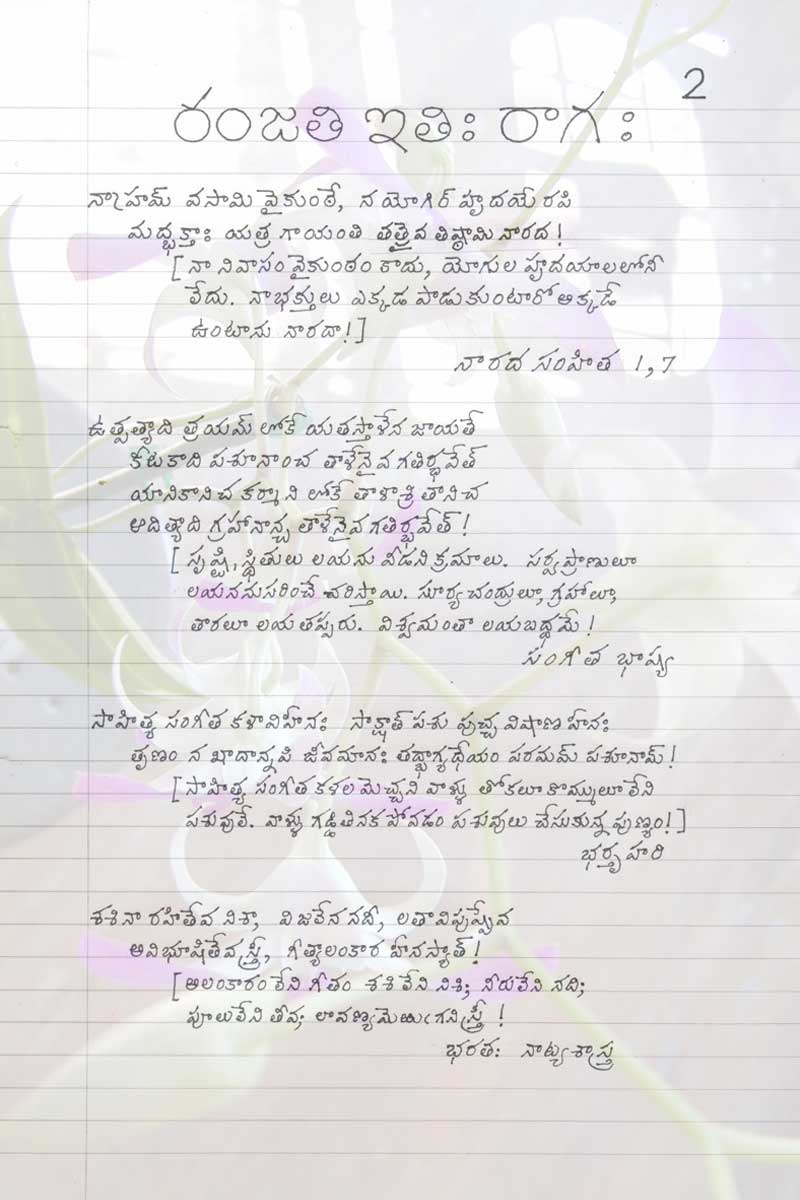 2
రంజతి ఇతిః రాగః
నాహమ్ వసామి వైకుంఠే, న యోగిర్ హృదయే రపి
మద్భక్తాః యత్ర గాయంతి తత్రైవ తిష్ఠామి నారద!
[నా నివాసం వైకుంఠం కాదు, యోగుల హృదయాలలోనీ
లేదు. నాభక్తులు ఎక్కడ పాడుకుంటారో అక్కడే
ఉంటాను నారదా!]
నారద సంహిత 1,7
ఉత్పత్యాది త్రయమ్ లోకే యతస్తాళేన జాయతే
కీటకాది పశూనాంచ తాళేనైవ గతిర్భవేత్
యానికానిచ కర్మాని లోకే తాళాశ్రితానిచ
ఆదిత్యాది గ్రహానాన్చ తాళేనైవ గతిర్భవేత్!
[సృష్టి, స్థితులు లయను వీడని క్రమాలు. సర్వప్రాణులూ
లయననుసరించే చరిస్తాయి. సూర్యచంద్రులూ, గ్రహాలూ,
తారలూ లయతప్పరు. విశ్వమంతా లయబద్ధమే!
సంగీత భాష్య
సాహిత్య సంగీత కళావిహీనః సాక్షాత్ పశు పుచ్ఛ విషాణ హీనః
తృణం న ఖాదాన్నపి జీవమానః తద్భాగ్యధేయం పరమమ్ పశూనామ్!
[సాహిత్య సంగీత కళల మెచ్చని వాళ్ళు తోకలూ కొమ్ములూ లేని
పశువులే. వాళ్ళు గడ్డితినక పోవడం పశువులు చేసుకున్న పుణ్యం!]
భర్తృహరి
శశినా రహితేవ నిశా, విజలేన నదీ, లతావిపుష్పేన
అవిభూషితేవ స్త్రీ, గీత్యాలంకార హీనస్యాత్!
[అలంకారంలేని గీతం శశి లేని నిశి; నీరులేని నది;
పూలులేని తీవ్ర; లావణ్యమెఱుఁగని స్త్రీ!
భరత: నాట్యశాస్త్ర